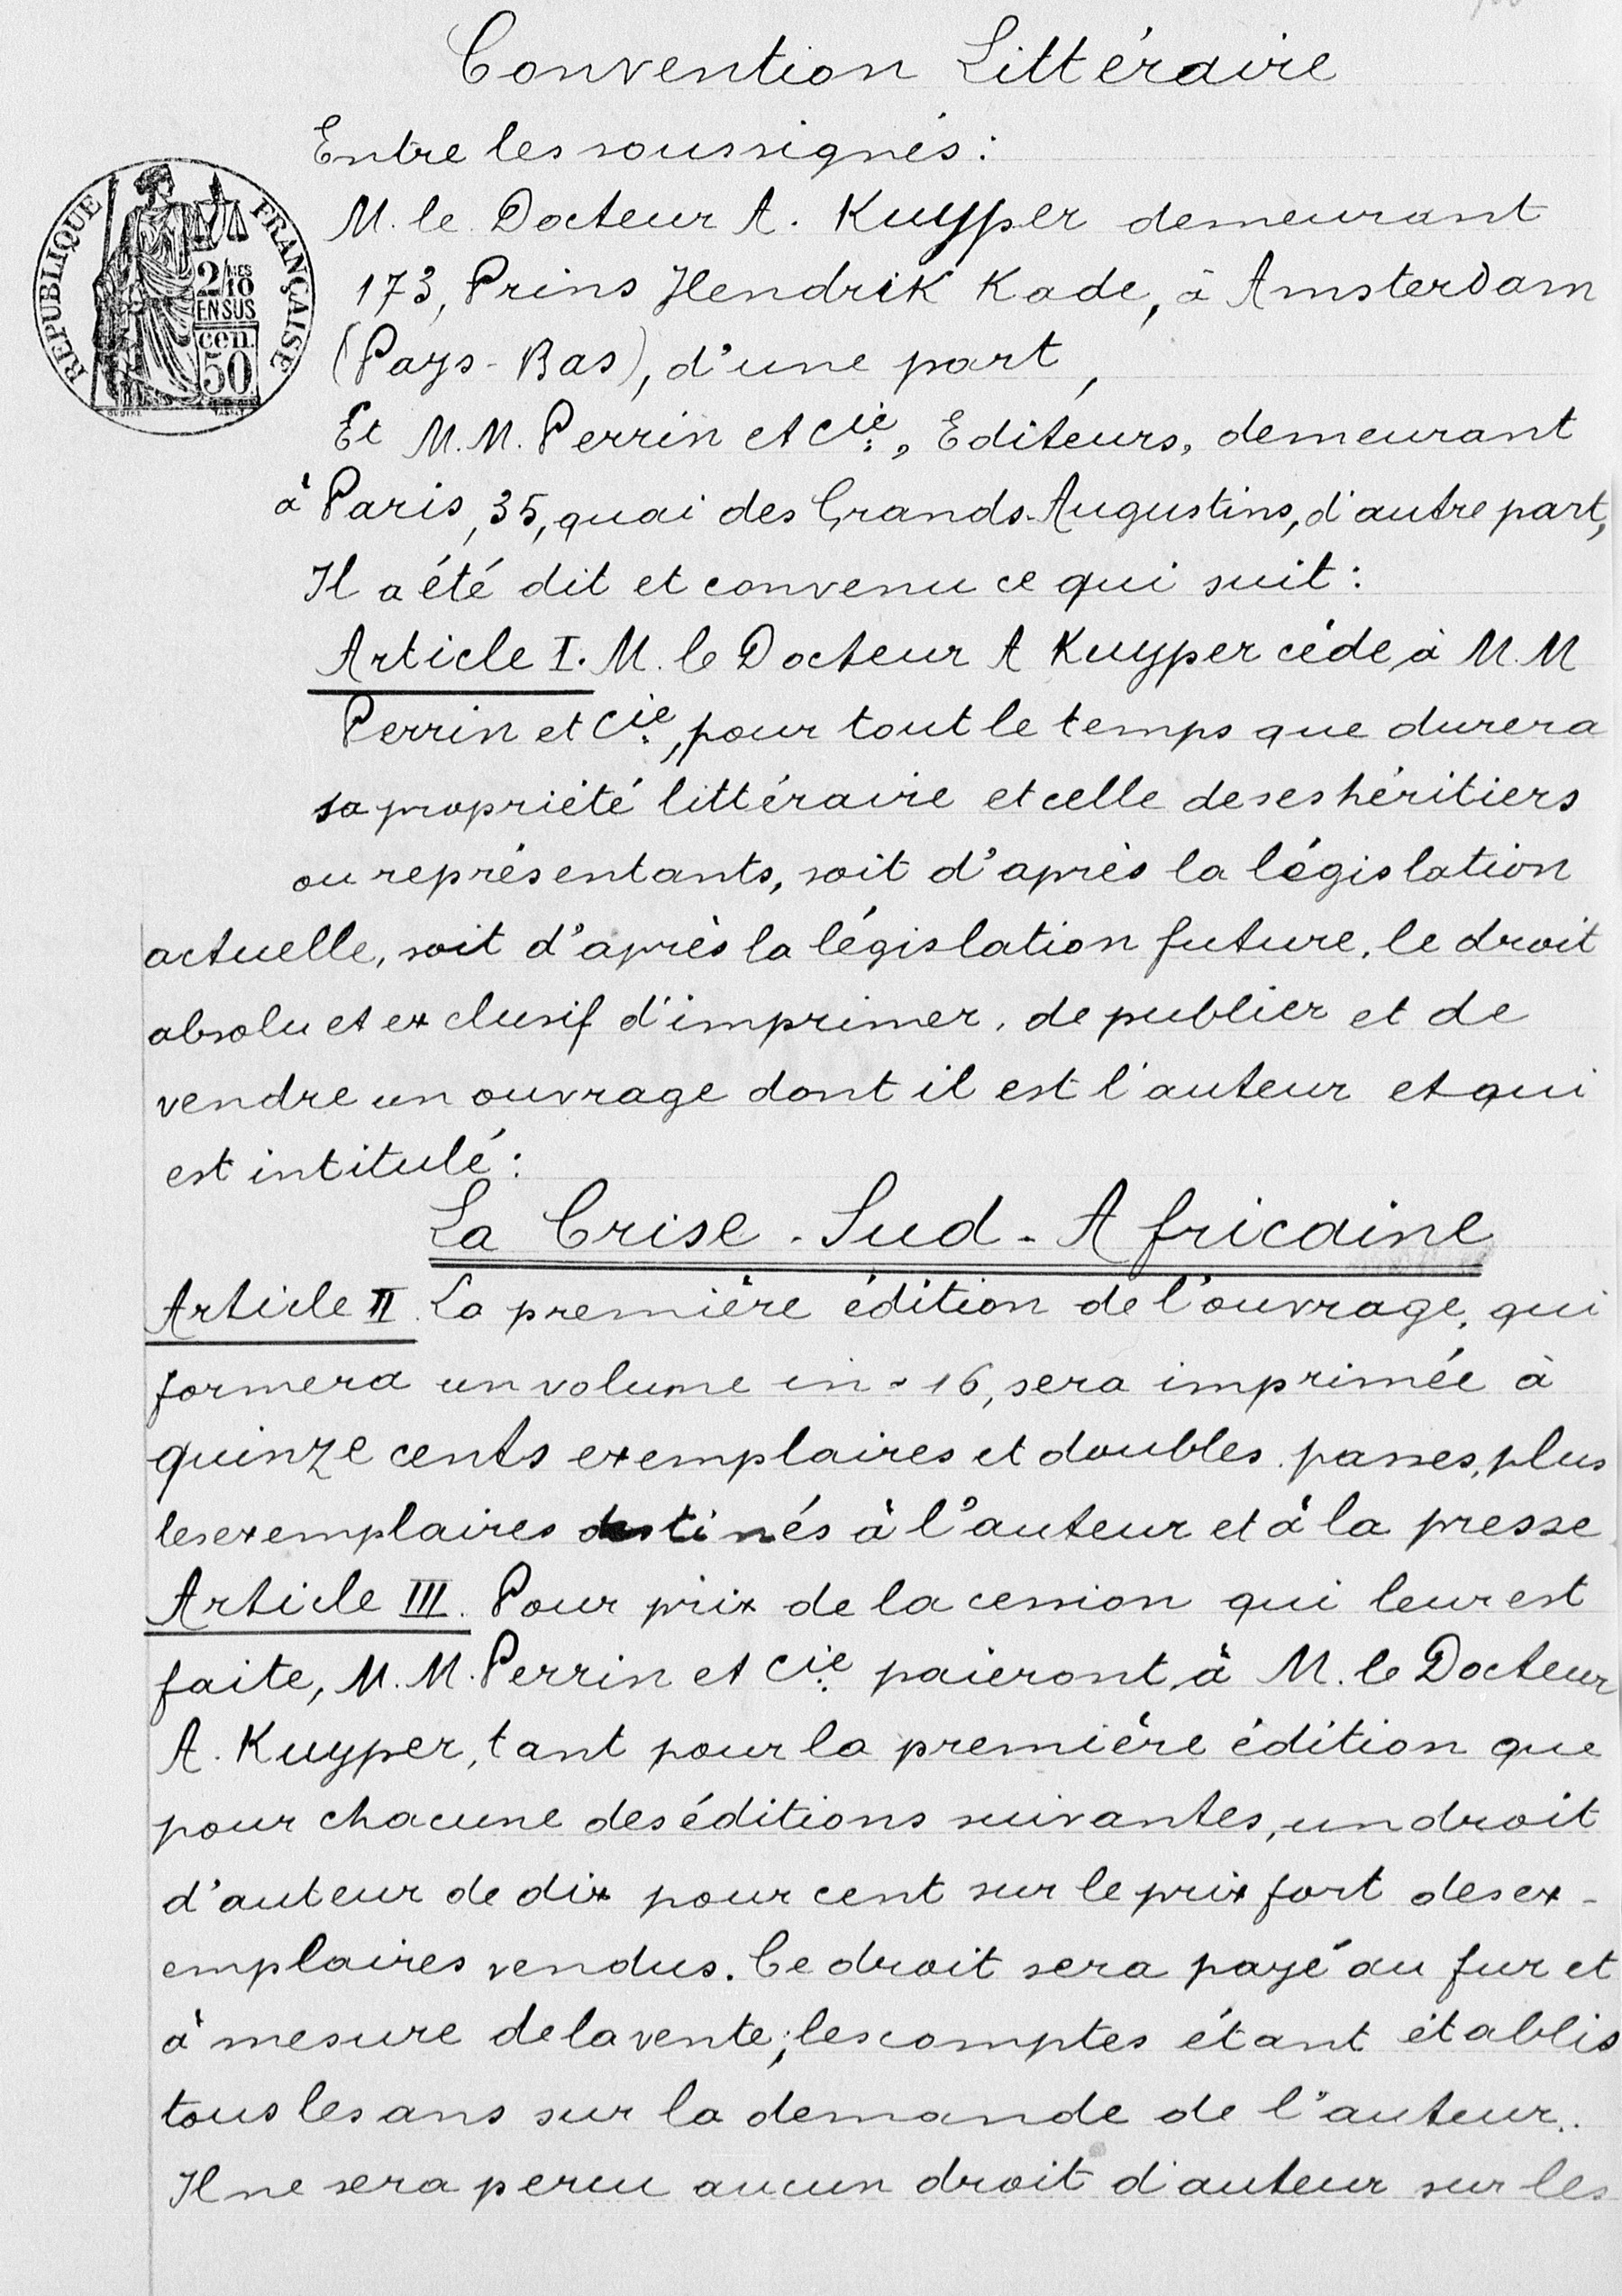 Convention Littéraire
Entre les soussignés:
M. le Docteur A. Kuyper demeurant
173, Prins Hendrik Kade, à Amsterdam
(Pays-Bas), d'une part,
Et M.M. Perrin et Cie, Editeurs, demeurant
à Paris, 35, quai des Grands-Augustins, d'autre part,
Il a été dit et convenu ce qui suit:
Article I. M. le Docteur A Kuyper cède à M.M
Perrin et Cie, pour tout le temps que durera
sa propriété littéraire et celle de ses héritiers
ou représentants, soit d'après la législation
actuelle, soit d'après la législation future, le droit
absolu et exclusif d'imprimer, de publier et de
vendre un ouvrage dont il est l'auteur et qui
est intitulé:
La Crise-Sud-Africaine
Article II. La première édition de l'ouvrage, qui
formera un volume in-16, sera imprimée à
quinze cents exemplaires et doubles passes, plus
les exemplaires destinés à l'auteur et à la presse.
Article III. Pour prix de la cession qui leur est
faite, M.M. Perrin et Cie paieront à M. le Docteur
A. Kuyper, tant pour la première édition que
pour chacune des éditions suivantes, un droit
d'auteur de dix pour cent sur le prix fort des ex-
emplaires vendus. Ce droit sera payé au fur et
à mesure de la vente; les comptes étant établis
tous les ans sur la demande de l'auteur.
Il ne sera percu aucun droit d'auteur sur les
REPUBLIQUE FRANÇAISE
2/MES
10
EN SUS
cen.
50